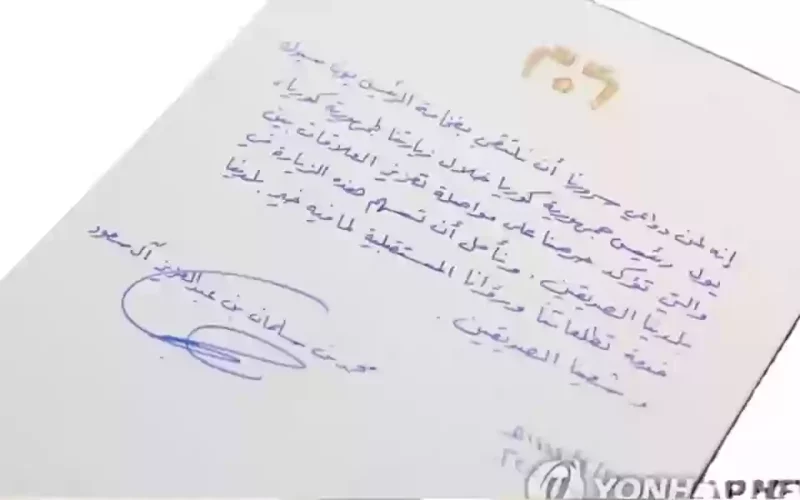 إنه لمن دواعي سرورنا أن نلتقي بفخامة الرئيس يون سوك
يول رئيس جمهورية كوريا خلال زيارتنا لجمهورية كوريا،
والتي تؤكد حرصنا على مواصلة تعزيز العلاقات بين
بلدينا الصديقين. ونأمل أن تسهم هذه الزيارة في
خدمة تطلعاتنا ورؤانا المستقبلية لما فيه خير بلدينا
وشعبينا الصديقين.
محمد بن سلمان بن عبدالعزيز آل سعود
YONHAP NEWS